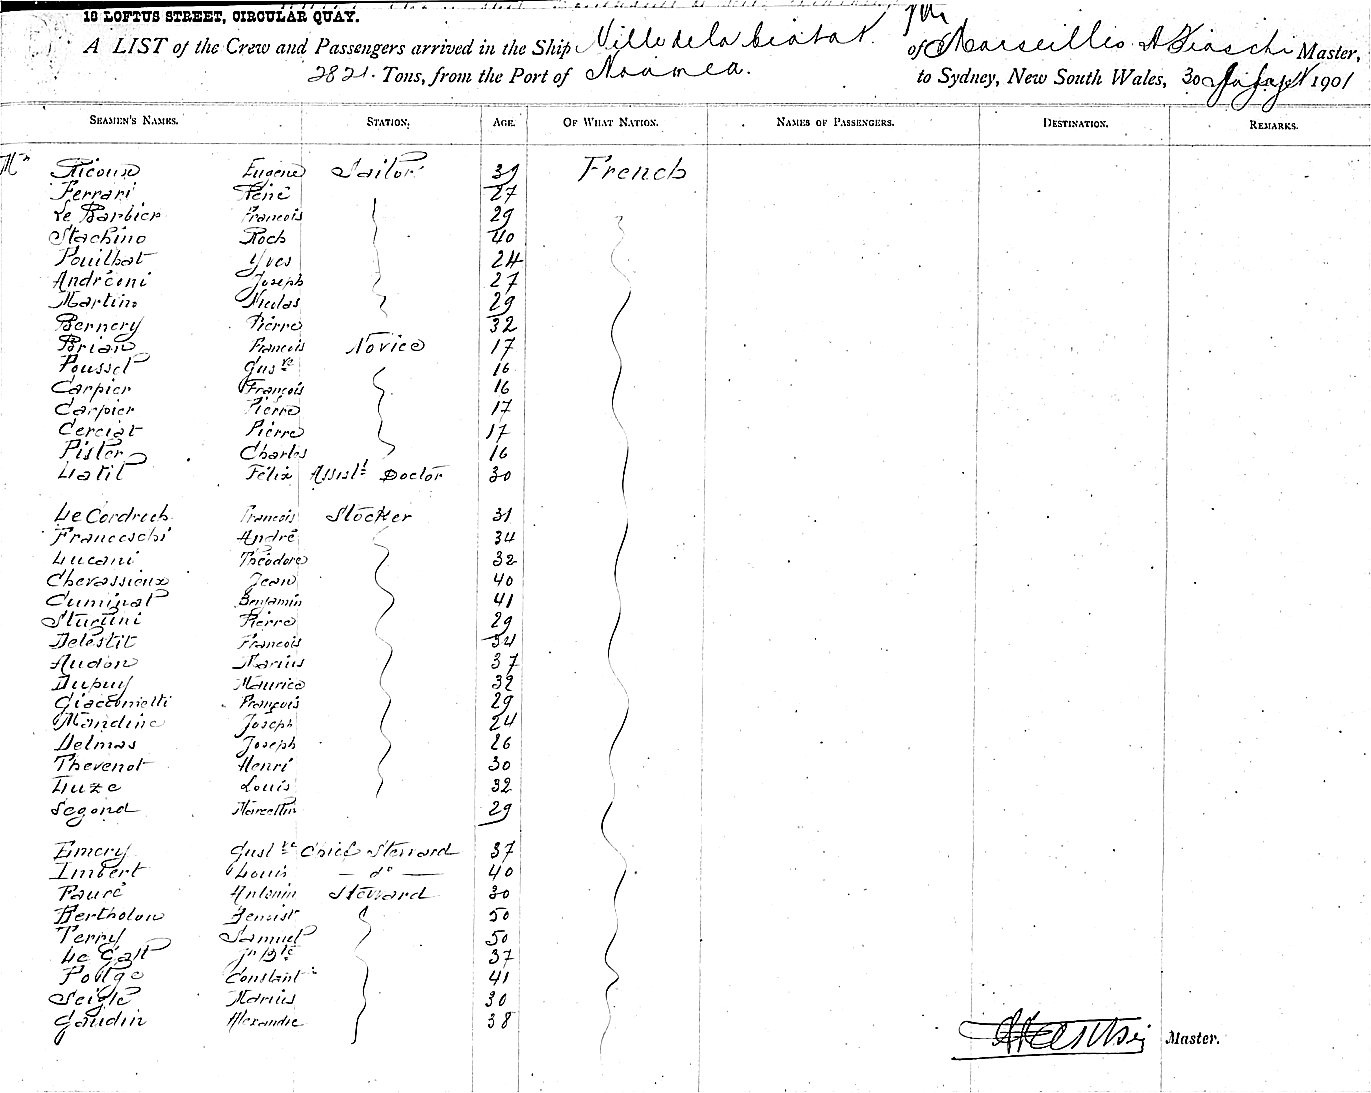 18 LOFTUS STREET, CIRCULAR QUAY.
A LIST of the Crew and Passengers arrived in the Ship Ville de la Ciotat of Marseilles A Fiaschi Master,
2821 Tons, from the Port of Noumea. to Sydney, New South Wales, 30 1901
SEAMEN'S NAMES. STATION. AGE. OF WHAT NATION. NAMES OF PASSENGERS. DESTINATION. REMARKS.
Mr Ricoux Eugene Sailor 39 French
Ferrari René 27
Le Barbier Francois 29
Stachino Roch 40
Pouilhat Yves 24
Andréoni Joseph 27
Martin Nicolas 29
Bernery Pierre 32
Brian Francois Novice 17
Poussel Gusve 16
Carpier François 16
Carpier Pierre 17
Cerciat Pierre 17
Pister Charles 16
Latil Félix Assistt Doctor 30
Le Cordrech Francois Stocker 31
Franceschi André 34
Lucani Théodore 32
Chevassieux Jean 40
Cuminal Benjamin 41
Sturlini Pierre 29
Delestit Francois 34
Audon Marius 37
Dupuy Maurice 32
Giaccometti François 29
Mandine Joseph 24
Delmas Joseph 26
Thevenot Henri 30
Luze Louis 32
Segond Marcellin 29
Emery Gustve Chief Steward 37
Imbert Louis — do — 40
Fauré Antonin Steward 30
Bertholon 50
Terry Samuel 50
Le Gall Jn Bte 37
Postge Constant 41
Seigle Marius 30
Gaudin Alexandre 38
Master.